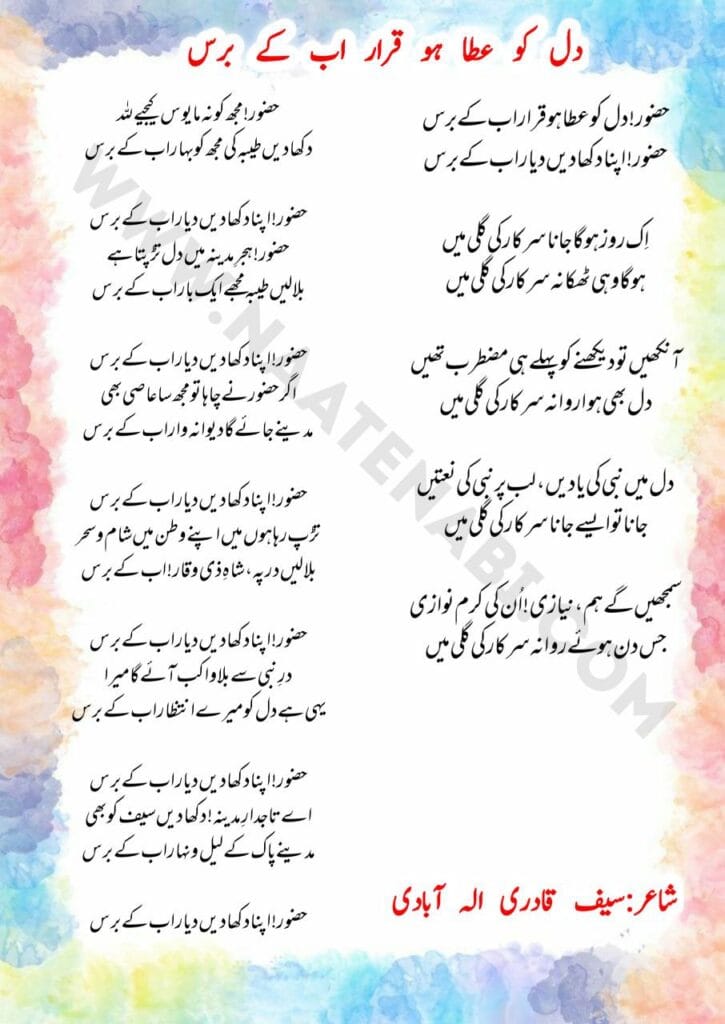 دل کو عطا ہو قرار اب کے برس
حضور! دل کو عطا ہو قرار اب کے برس
حضور! اپنا دکھا دیں دیار اب کے برس
اِک روز ہوگا جانا سرکار کی گلی میں
ہوگا وہی ٹھکانہ سرکار کی گلی میں
آنکھیں تو دیکھنے کو پہلے ہی مضطرب تھیں
دل بھی ہوا روانہ سرکار کی گلی میں
دل میں نبی کی یادیں، لب پر نبی کی نعتیں
جانا تو ایسے جانا سرکار کی گلی میں
سمجھیں گے ہم، نیازی! اُن کی کرم نوازی
جس دن ہوئے روانہ سرکار کی گلی میں
حضور! مجھ کو نہ مایوس کیجیے للہ
دکھا دیں طیبہ کی مجھ کو بہار اب کے برس
حضور! اپنا دکھا دیں دیار اب کے برس
حضور! ہجرِ مدینہ میں دل تڑپتا ہے
بلالیں طیبہ مجھے ایک بار اب کے برس
حضور! اپنا دکھا دیں دیار اب کے برس
اگر حضور نے چاہا تو مجھ سا عاصی بھی
مدینے جائے گا دیوانہ وار اب کے برس
حضور! اپنا دکھا دیں دیار اب کے برس
تڑپ رہا ہوں میں اپنے وطن میں شام و سحر
بلالیں در پہ، شاہِ ذی وقار! اب کے برس
حضور! اپنا دکھا دیں دیار اب کے برس
درِ نبی سے بلاوا کب آئے گا میرا
یہی ہے دل کو میرے انتظار اب کے برس
حضور! اپنا دکھا دیں دیار اب کے برس
اے تاجدارِ مدینہ! دکھا دیں سیف کو بھی
مدینے پاک کے لیل و نہار اب کے برس
حضور! اپنا دکھا دیں دیار اب کے برس
شاعر: سیف قادری الہ آبادی
WWW.NAATENABI.COM